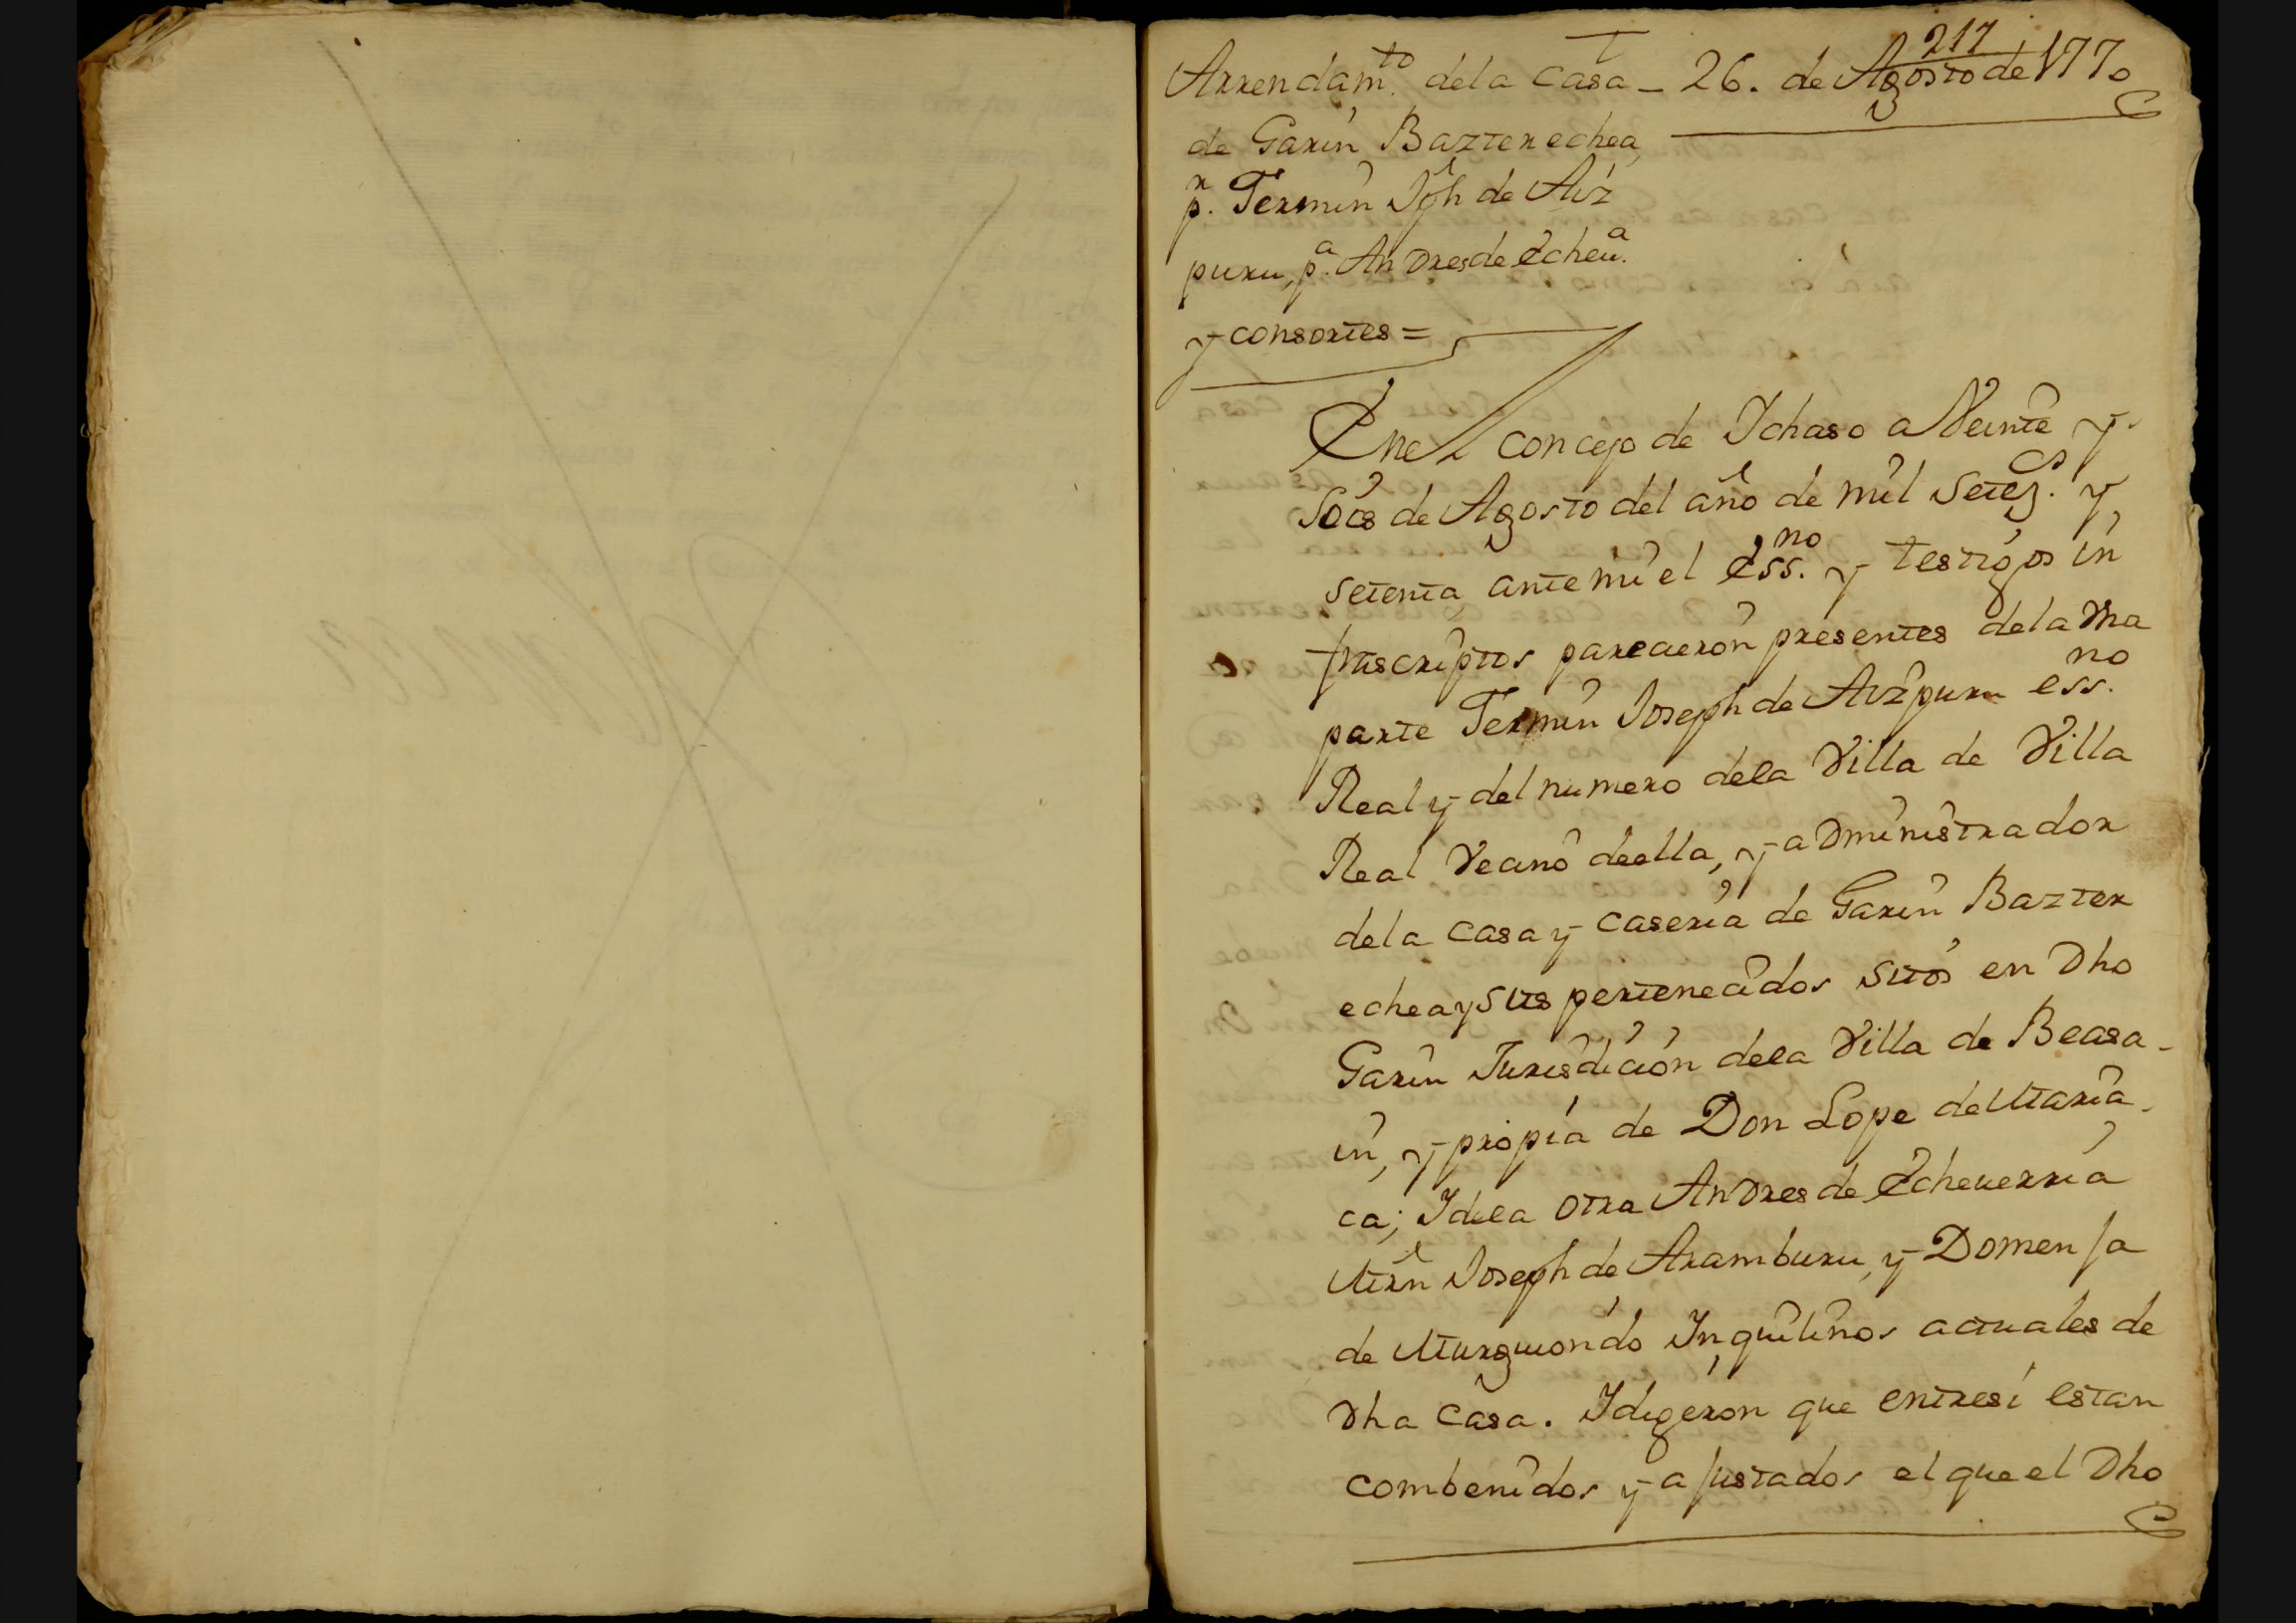 217
Arrendam.to dela Casa - 26. de Agosto de 1770
de Garin Bazterechea,
p.r Fermin Jph de Aiz
puru, p.a Andres de Echeu.a
y consortes =
Enel concejo de Ichaso a Veinte y
Seis de Agosto del año de mil Setez.s y
setenta, ante mi el Ess.no y testigos in
frascriptos parecieron presentes dela vna
parte Fermin Joseph de Aizpuru ess.no
Real y del numero dela Villa de Villa
Real Vecino deella, y administrador
dela Casa y Caseria de Garin Bazter
echea y sus pertenecidos sitos en dho
Garin Jurisdicion dela Villa de Beasa-
in, y propia de Don Lope de Utaria-
ca; I dela otra Andres de Echeuerria
Mrn Joseph de Aramburu, y Domenja
de Murguiondo Inquilinos actuales de
dha Casa. I digeron que entresi estan
combenidos y ajustados el que el dho